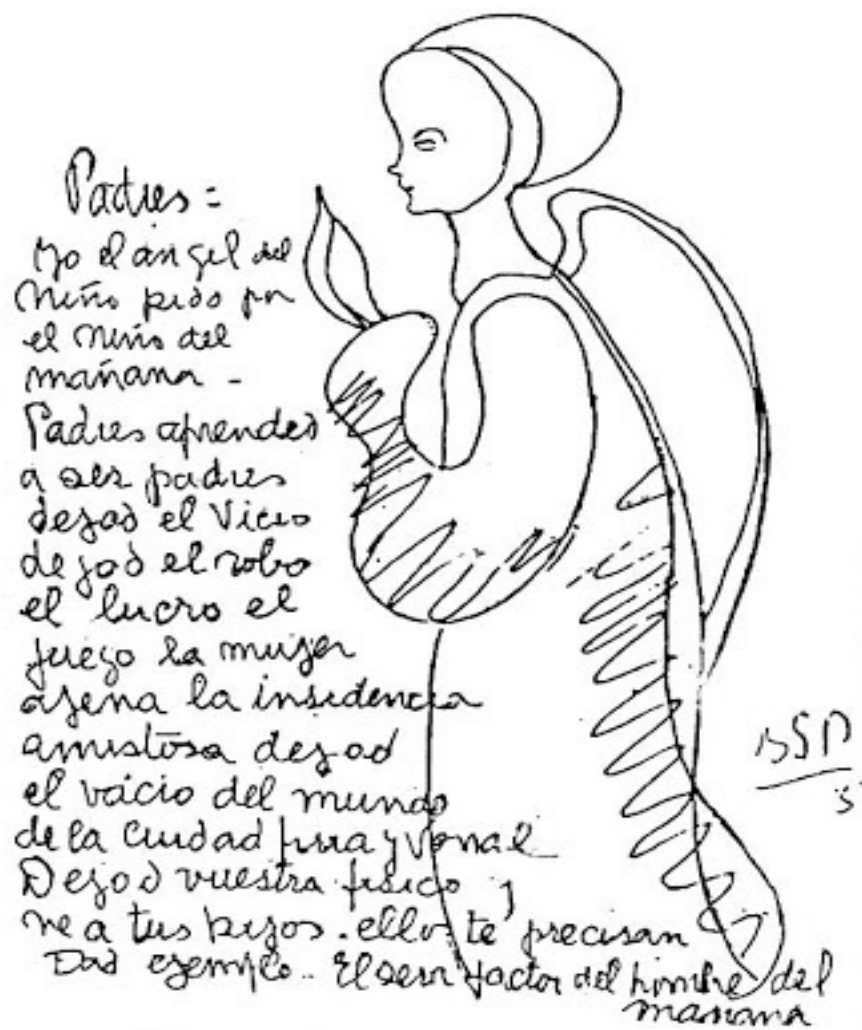 Padres =
Yo el angel del
Niño pido por
el niño del
mañana -
Padres aprended
a ser padres
dejad el Vicio
dejad el robo
el lucro el
juego la mujer
ajena la insidencia
amistosa dejad
el vacio del mundo
de la Ciudad y venal
Dejad vuestra
ve a tus hijos. ellos te precisan
Dad ejemplo.. El sera factor del hombre del
mañana